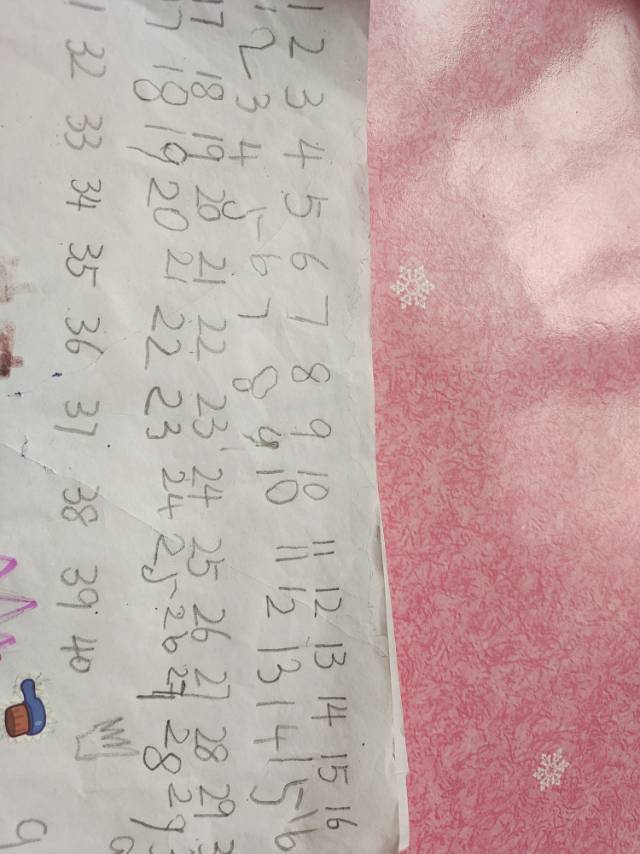 1 2 3 4 5 6 7 8 9 10 11 12 13 14 15 16
1 2 3 4 5 6 7 8 9 10 11 12 13 14 15 16
17 18 19 20 21 22 23 24 25 26 27 28 29
17 18 19 20 21 22 23 24 25 26 27 28 29
32 33 34 35 36 37 38 39 40
9